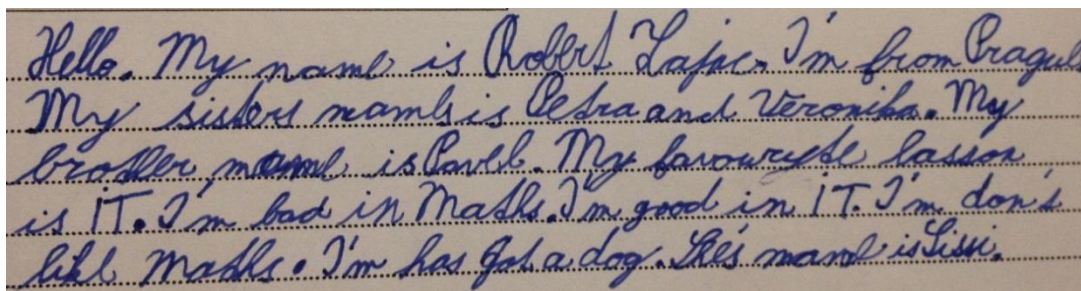 Hello. My name is Robert Zajac. I'm from Prague
My sisters names is Petra and Veronika. My
brother name is Pavel. My favouryte lasson
is IT. I'm bad in Maths. I'm good in IT. I'm don't
like Maths. I'm has got a dog. She's name is Sissi.